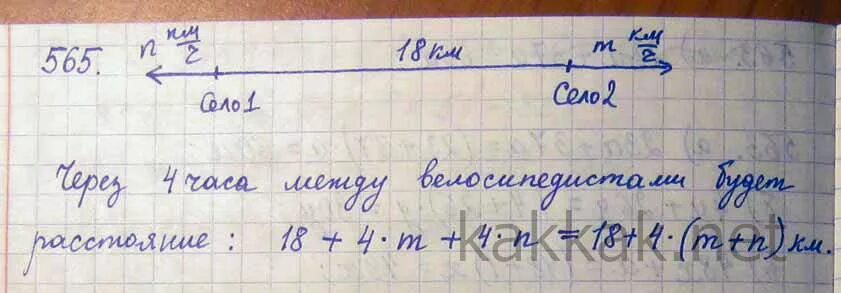 565. n км/ч 18 км m км/ч
Село1 Село2
Через 4 часа между велосипедистами будет
расстояние : 18 + 4·m + 4·n = 18+4·(m+n) км.
kakkak.net